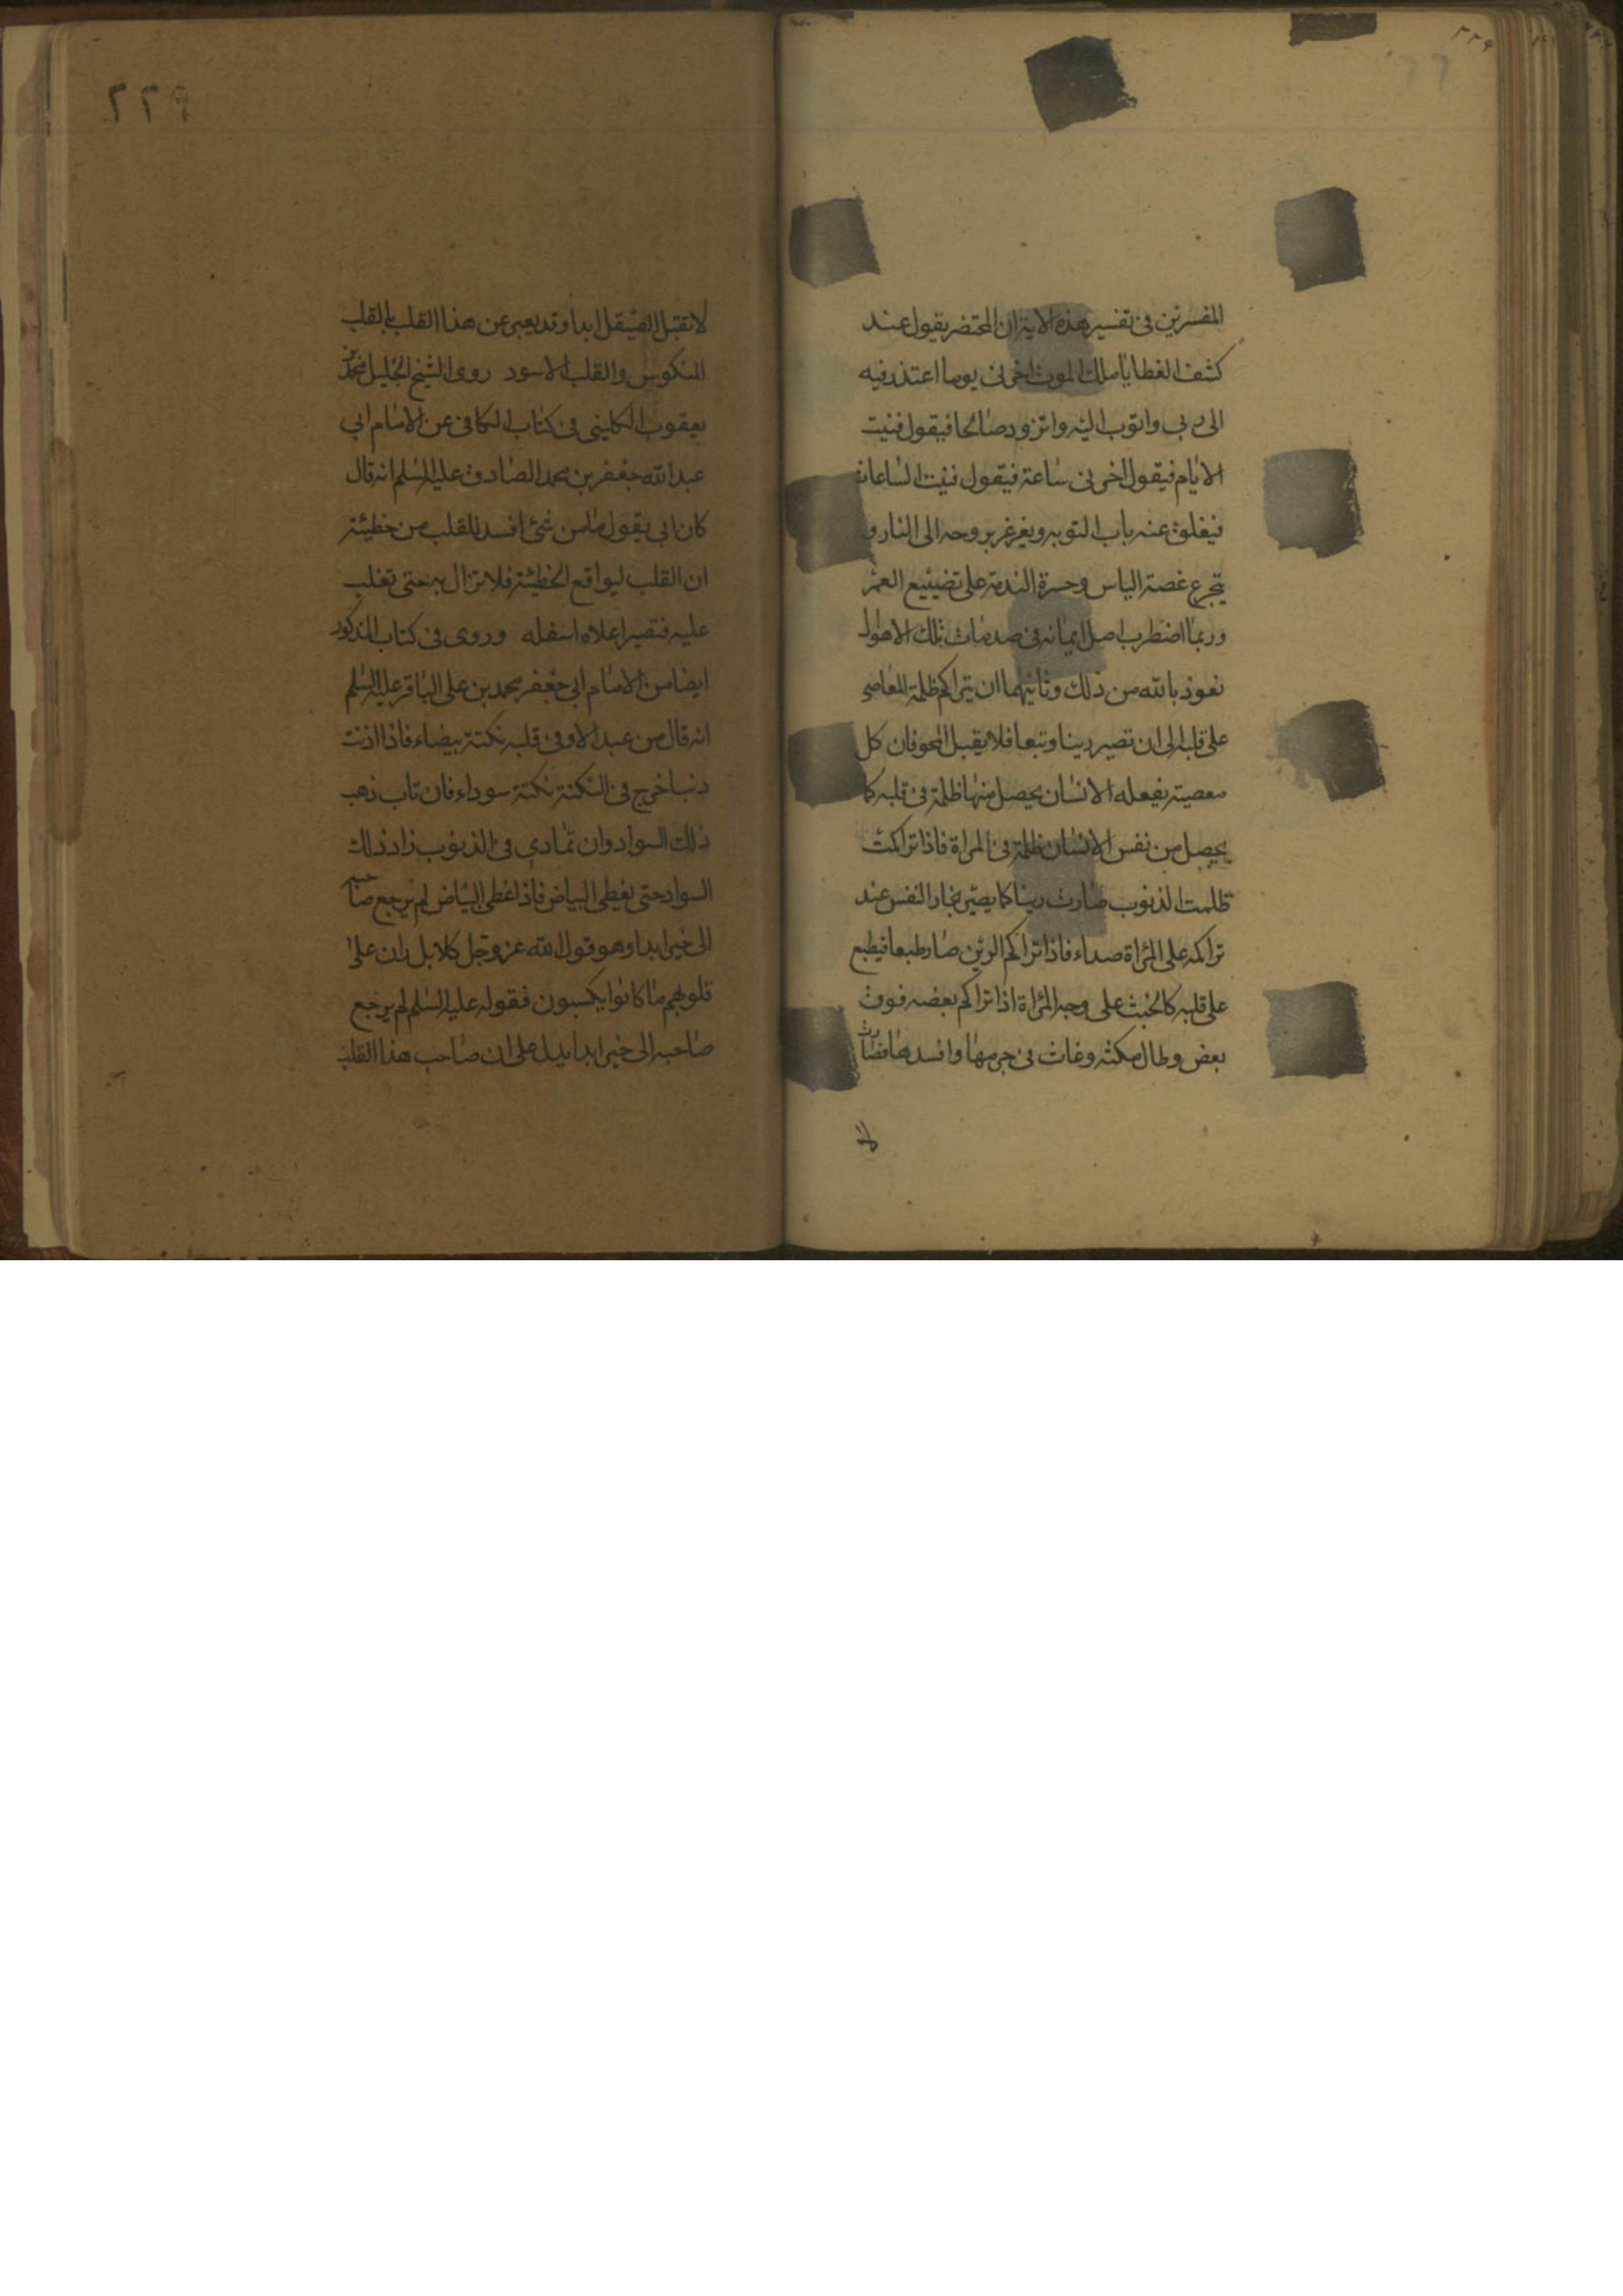 المفسرين فى تفسير هذه الاية ان المحتضر يقول عند
كشف الغطا يا ملك الموت اخرنى يوما اعتذر فيه
الى ربى واتوب اليه واتزود صالحا فيقول فنيت
الايام فيقول اخرنى ساعة فيقول فنيت الساعات
فيغلق عنه باب التوبه ويغرغر بروحه الى النار و
يتجرع غصة الياس وحسرة الندمة على تضييع العمر
وربما اضطرب اصل ايمانه فى صدمات تلك الاهوال
نعوذ بالله من ذلك وثانيهما ان يتراكم ظلمة المعاصى
على قلبه الى ان تصير رينا وتبعا فلا يقبل المحو فان كل
معصية يفعله الانسان يحصل منها ظلمة فى قلبه كما
يحصل من نفس الانسان ظلمة فى المراة فاذا تراكمت
ظلمت الذنوب صارت رينا كما يصير بخار النفس عند
تراكمه على المراة صداء فاذا تراكم الرين صار طبعا فيطبع
على قلبه كالخبث على وجه المراة اذا تراكم بعضه فوق
بعض وطال مكثه وغاث فى جرمها وافسدها فصارت
لا
٢٢٩
لا تقبل الصيقل ابدا وقد يعبر عن هذا القلب بالقلب
المنكوس والقلب الاسود روى الشيخ الجليل محمد بن
يعقوب الكلينى فى كتاب الكافى عن الامام ابى
عبد الله جعفر بن محمد الصادق عليه السلم انه قال
كان ابى يقول ما من شئ افسد للقلب من خطيئة
ان القلب ليواقع الخطيئة فلا تزال به حتى تغلب
عليه فتصير اعلاه اسفله وروى فى كتاب المذكور
ايضا من الامام ابى جعفر محمد بن على الباقر عليه السلم
انه قال من عبد الا وفى قلبه نكتة بيضاء فاذا اذنت
دنبا خرج فى النكتة نكتة سوداء فان تاب ذهب
ذلك السواد وان تمادى فى الذنوب زاد ذلك
السواد حتى يغطى البياض فاذا غطى البياض لم يرجع صاحبه
الى خير ابدا وهو قول الله عز وجل كلا بل ران على
قلوبهم ما كانوا يكسبون فقوله عليه السلم لم يرجع
صاحبه الى خير ابدا يدل على ان صاحب هذا القلب